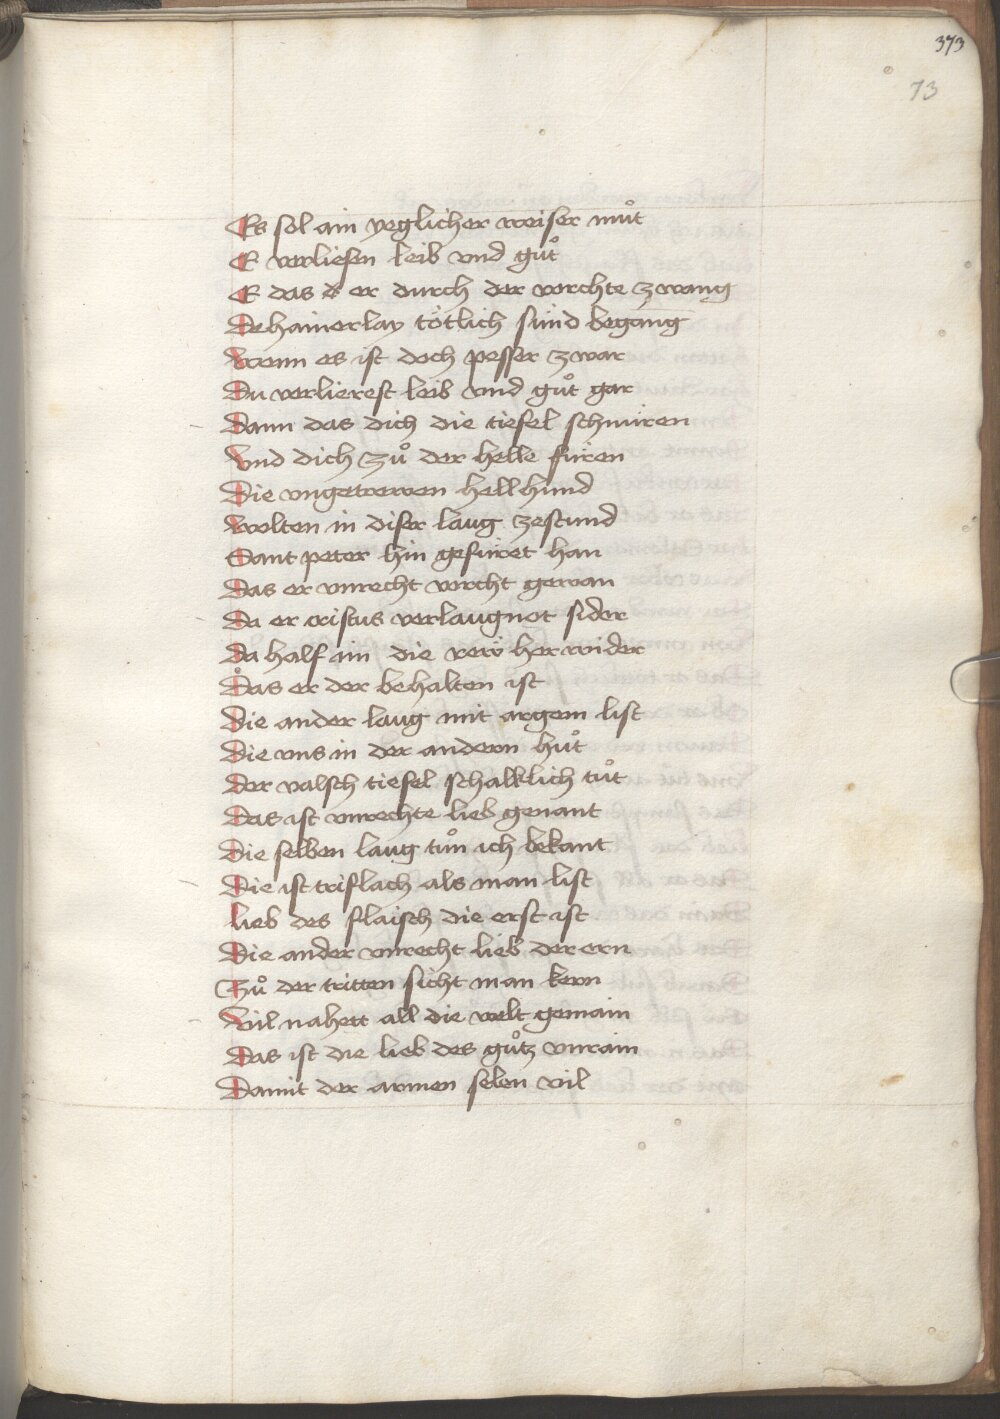 373
73
Es sol ain yeglicher weiser muͦt
E verliesen leib vnd guͦt
E das er durch der vorchte zwang
Dehainerlay tötlich sünd begang
Wenn es ist doch pesser zwar
Du verlierest leib vnd guͦt gar
Dann das dich die tiefel schmüren
Vnd dich zuͦ der helle füren
Die vngetrewen hellhund
Wolten in diser laug zestund
Sant peter hin gefüret han
Das er vnrecht vorcht gewan
Da er cristus verlaugnot sider
Da half im die rew her wider
Das er der behalten ist
Die ander laug mit argem list
Die vns in der andern huͦt
Der valsch tiefel schalklich tuͦt
Das ist vnrechte lieb genant
Die selben laug tuͦn ich bekant
Die ist triflach als man list
Lieb des flaisch die erst ist
Die ander vnrecht lieb der ern
Zuͦ der tritten sicht man kern
Vil nahett all die welt gemain
Das ist die lieb des guͦtz vnrain
Damit der armen selen vil